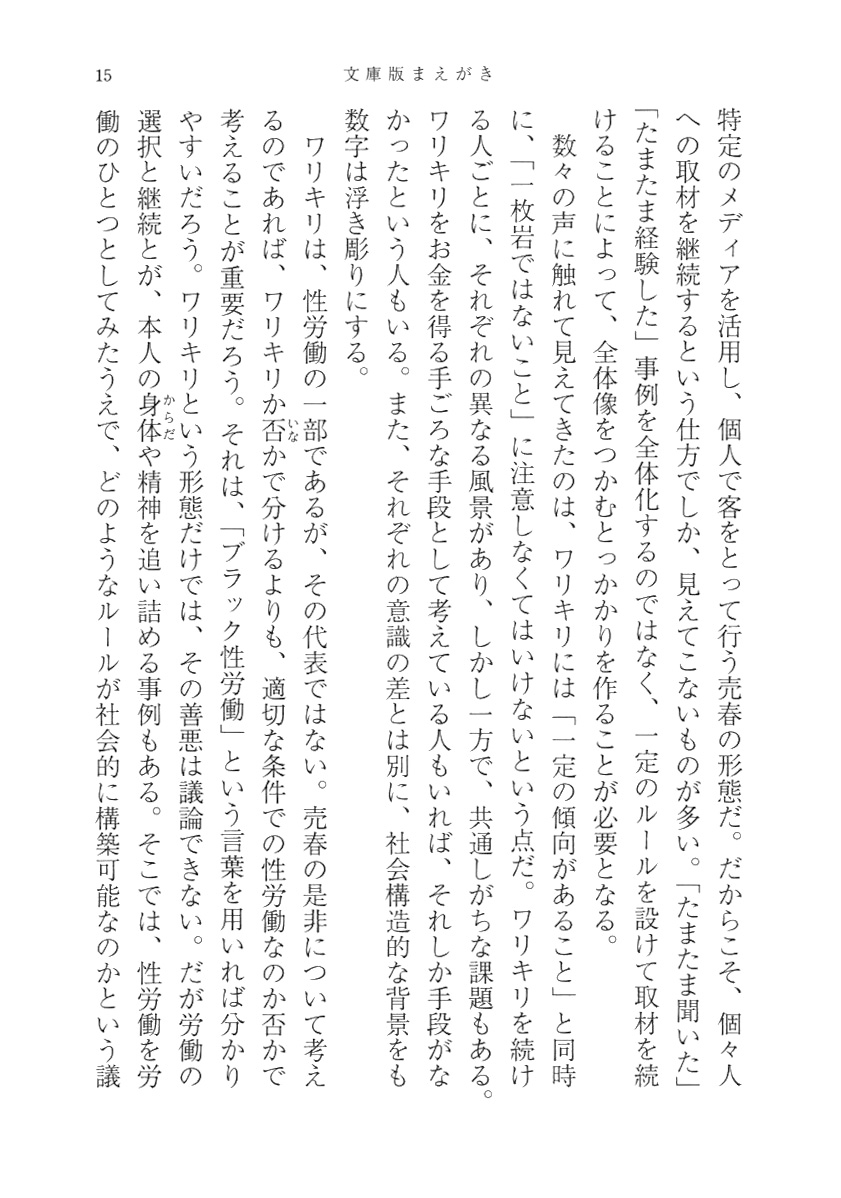 文庫版まえがき
15
特定のメディアを活用し、個人で客をとって行う売春の形態だ。だからこそ、個々人
への取材を継続するという仕方でしか、見えてこないものが多い。「たまたま聞いた」
「たまたま経験した」事例を全体化するのではなく、一定のルールを設けて取材を続
けることによって、全体像をつかむとっかかりを作ることが必要となる。
　数々の声に触れて見えてきたのは、ワリキリには「一定の傾向があること」と同時
に、「一枚岩ではないこと」に注意しなくてはいけないという点だ。ワリキリを続け
る人ごとに、それぞれの異なる風景があり、しかし一方で、共通しがちな課題もある。
ワリキリをお金を得る手ごろな手段として考えている人もいれば、それしか手段がな
かったという人もいる。また、それぞれの意識の差とは別に、社会構造的な背景をも
数字は浮き彫りにする。
　ワリキリは、性労働の一部であるが、その代表ではない。売春の是非について考え
るのであれば、ワリキリか否いなかで分けるよりも、適切な条件での性労働なのか否かで
考えることが重要だろう。それは、「ブラック性労働」という言葉を用いれば分かり
やすいだろう。ワリキリという形態だけでは、その善悪は議論できない。だが労働の
選択と継続とが、本人の身体からだや精神を追い詰める事例もある。そこでは、性労働を労
働のひとつとしてみたうえで、どのようなルールが社会的に構築可能なのかという議